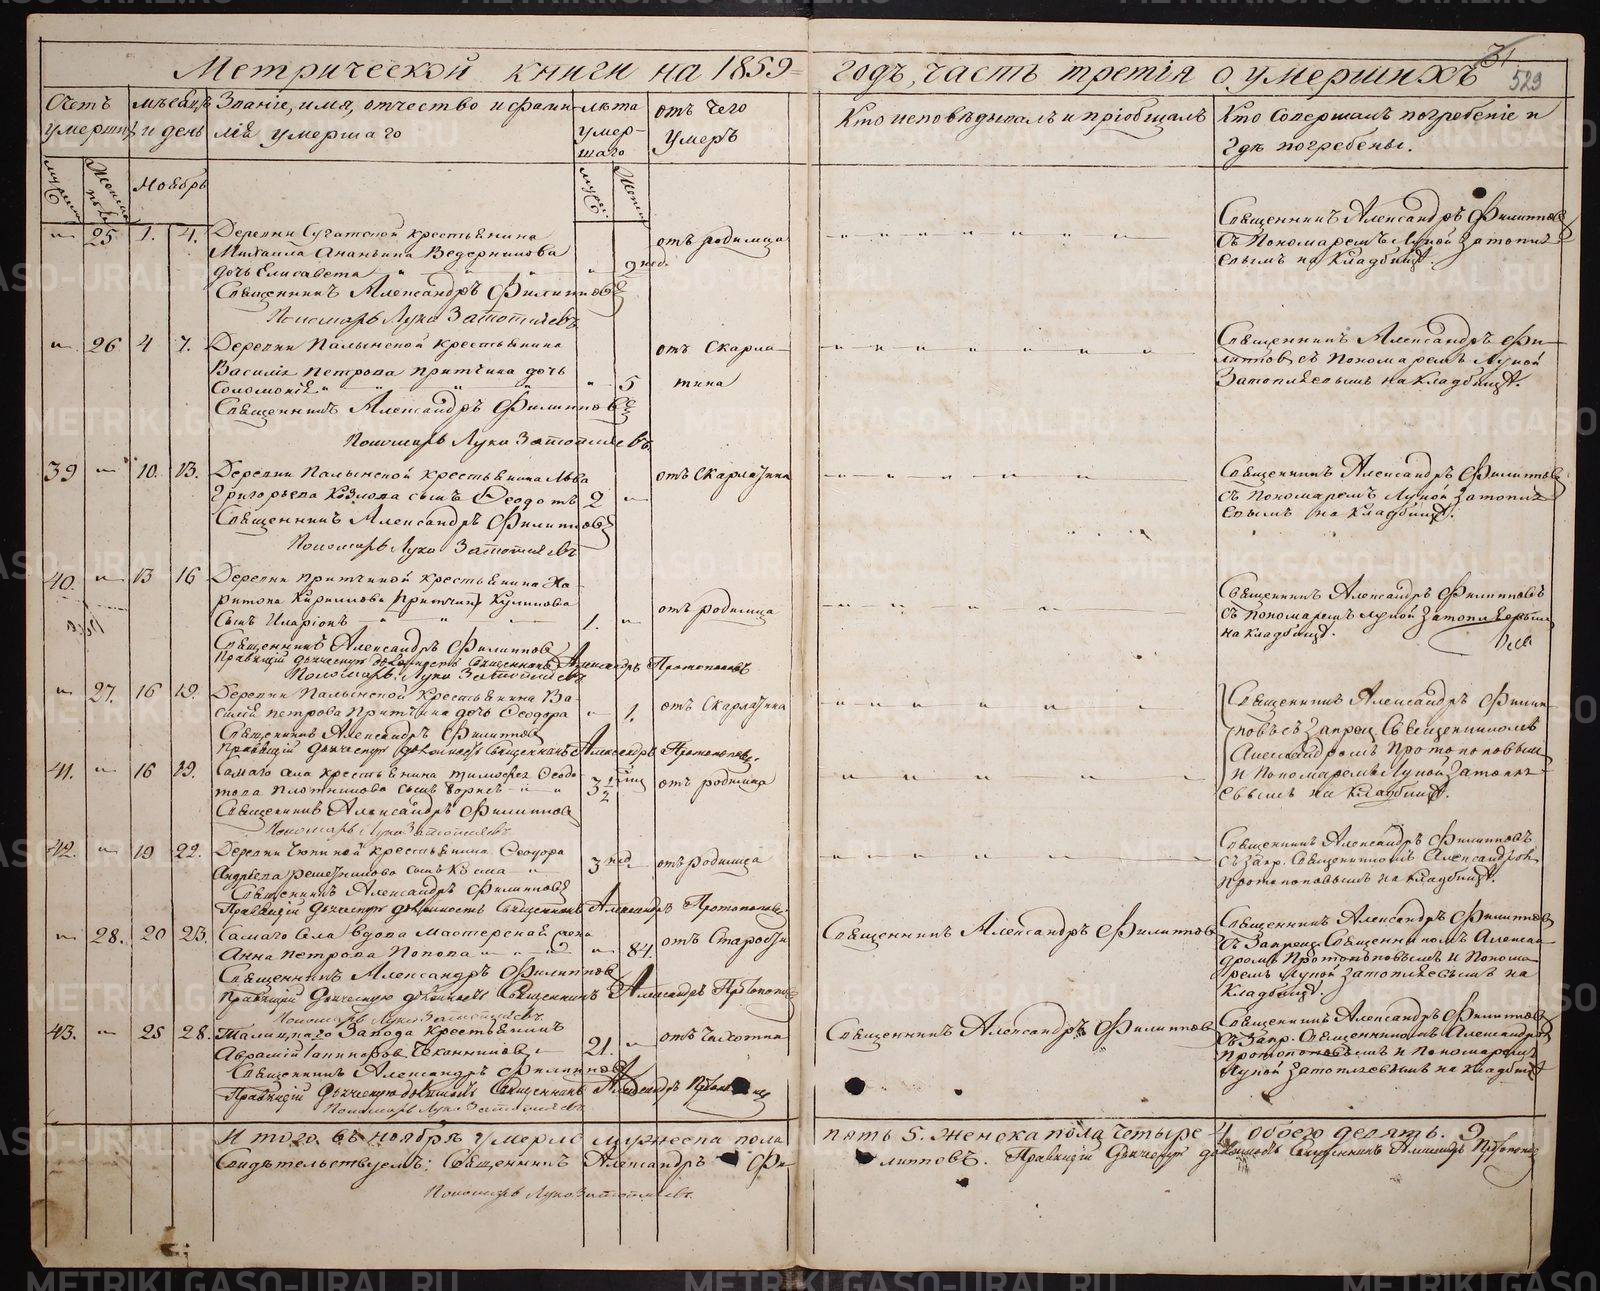 Метрической книги на 1859 годъ, часть третія о умершихъ
31
529
Счетъ умершихъ
мѣсяцъ и день
Званіе, имя, отчество и фамилія умершаго
лѣта умершаго
отъ чего умеръ
Кто исповѣдывалъ и пріобщалъ
Кто совершалъ погребеніе и гдѣ погребены.
Ноябрь
25 1. 4. Деревни крестьянина
Михаила Ананьина Ведерникова
дочь Елисавета 2 нед. отъ родимца
Священникъ Александръ Филипповъ
Пономарь Лука Затопляевъ
Священникъ Александръ Филипповъ
съ Пономаремъ Лукой Затопля-
евымъ на кладбищѣ.
26 4 7. Деревни Палкинской крестьянина
Василія Петрова Притчина дочь
Соломонія 5 отъ скарла-
тина
Священникъ Александръ Филипповъ
Пономарь Лука Затопляевъ
Священникъ Александръ Фи-
липповъ съ Пономаремъ Лукой
Затопляевымъ на кладбищѣ.
39 10. 13. Деревни Палкинской крестьянина Льва
Григорьева Козлова сынъ Ѳеодотъ 2 отъ скарлатина
Священникъ Александръ Филипповъ
Пономарь Лука Затопляевъ
Священникъ Александръ Филипповъ
съ Пономаремъ Лукой Затопля-
евымъ на кладбищѣ.
40. 13 16 Деревни Притчиной крестьянина Ха-
ритона Кирилова Куликова
сынъ Иларіонъ 1. отъ родимца
Священникъ Александръ Филипповъ
Правящій дьяческую должность Священникъ Александръ Протопоповъ
Пономарь Лука Затопляевъ
Священникъ Александръ Филипповъ
съ пономаремъ Лукой Затопляевымъ
на кладбищѣ.
27. 16 19. Деревни Палкинской крестьянина Ва-
силія Петрова Притчина дочь Ѳеодора 1. отъ скарлатина
Священникъ Александръ Филипповъ
Правящій дьяческую должность Священникъ Александръ Протопоповъ.
41. 16 19. Самаго села крестьянина Тимофея Ѳедо-
това Плотникова сынъ Борисъ 3 1/2 отъ родимца
Священникъ Александръ Филипповъ
Пономарь Лука Затопляевъ
Священникъ Александръ Филип-
повъ съ запрещ. Священникомъ
Александромъ Протопоповымъ
и Пономаремъ Лукой Затопля-
евымъ на кладбищѣ.
42. 19 22. Деревни крестьянина Ѳеодора
Андреева Решетникова сынъ Косма 3 нед. отъ родимца
Священникъ Александръ Филипповъ
Правящій дьяческую должность Священникъ Александръ Протопоповъ
Священникъ Александръ Филипповъ
съ запр. Священникомъ Александромъ
Протопоповымъ на кладбищѣ.
28. 20 23. Самаго села вдова мастерская жена
Анна Петрова Попова 84. отъ старости
Священникъ Александръ Филипповъ
Священникъ Александръ Филипповъ
Правящій дьяческую должность Священникъ Александръ Протопоповъ
Пономарь Лука Затопляевъ
Священникъ Александръ Филипповъ
съ запрещ. Священникомъ Алексан-
дромъ Протопоповымъ и Понома-
ремъ Лукой Затопляевымъ на
кладбищѣ.
43. 25 28. завода крестьянинъ
Аврамій 21. отъ чахотки
Священникъ Александръ Филипповъ
Священникъ Александръ Филипповъ
Правящій дьяческую должность Священникъ Александръ
Пономарь Лука Затопляевъ
Священникъ Александръ Филипповъ
съ запр. Священникомъ Александромъ
Протопоповымъ и Пономаремъ
Лукой Затопляевымъ на кладбищѣ
Итого въ ноябрѣ умерло мужеска пола пять 5. женска пола четыре 4 обоего девять. 9
Свидѣтельствуемъ: Священникъ Александръ Филипповъ. Правящій дьяческую должность Священникъ Александръ Протопоповъ
Пономарь Лука Затопляевъ.
METRIKI.GASO-URAL.RU